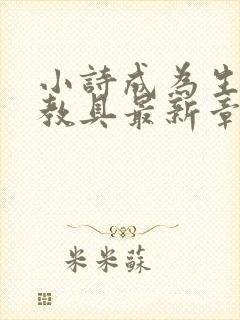 小詩成為生
教具最新章
米米蘇